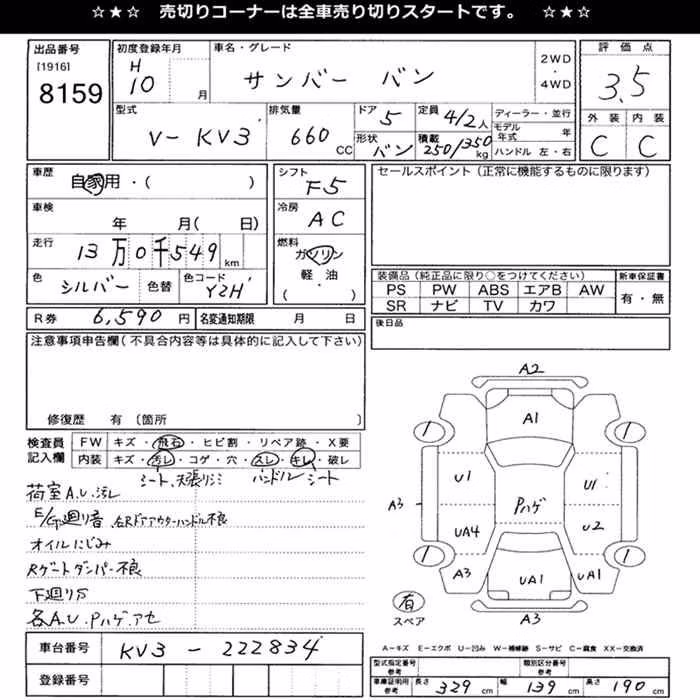 ☆★☆ 売切りコーナーは全車売り切りスタートです。 ☆★☆
出品番号
[1916]
8159
初度登録年月
H
10 月
車名・グレード
サンバー バン
2WD
・
4WD
評価点
3.5
外装 内装
C C
型式
V-KV3
排気量
660 CC
ドア
5
形状
バン
定員
4/2人
積載
250/350 kg
ディーラー・並行
モデル年式 年
ハンドル 左・右
車歴
自家用・( )
車検
年 月( 日)
走行
13万0千549 km
色
シルバー
色替
色コード
Y2H
シフト
F5
冷房
AC
燃料
ガソリン
軽・油
( )
セールスポイント(正常に機能するものに限ります)
装備品(純正品に限り○をつけてください)
PS PW ABS エアB AW
SR ナビ TV カワ
新車保証書
有・無
R券 6,590 円
名変通知期限 月 日
後日品
注意事項申告欄(不具合内容等は具体的に記入して下さい)
修復歴 有 〔箇所 〕
検査員
記入欄
FW キズ・飛石・ヒビ割・リペア跡・X要
内装 キズ・汚レ・コゲ・穴・スレ・キレ・破レ
シート、天張リシミ ハンドル シート
荷室A.U.汚レ
E/G廻り音、右Rドアアウターハンドル不良
オイルにじみ
Rゲートダンパー不良
下廻りサ
各A.U.Pハゲ.アセ
A2
A1
U1
Pハゲ
U1
A3
UA4
U2
A3
UA1
UA1
A3
有
スペア
A-キズ E-エクボ U-凹み W-補修跡 S-サビ C-腐食 XX-交換済
車台番号 KV3-222834
登録番号
型式指定番号
参考
類別区分番号
参考
車庫証明用
参考
長さ 329 cm 幅 139 cm 高さ 190 cm